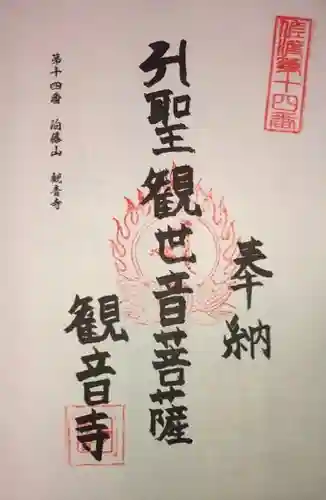 佐渡第十四番
奉納
聖観世音菩薩
観音寺
第十四番 山 観音寺